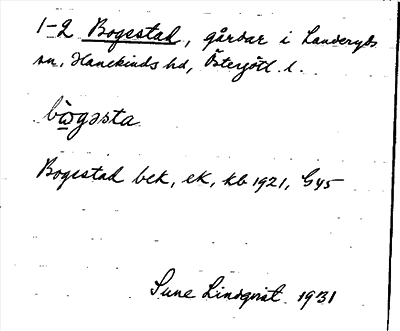 1-2 Bogestad, gårdar i Landeryds
sn, Hanekinds hd, Östergötl. l.
bωgəsta
Bogestad bek, ek, kb 1921, G45
Sune Lindqvist 1931